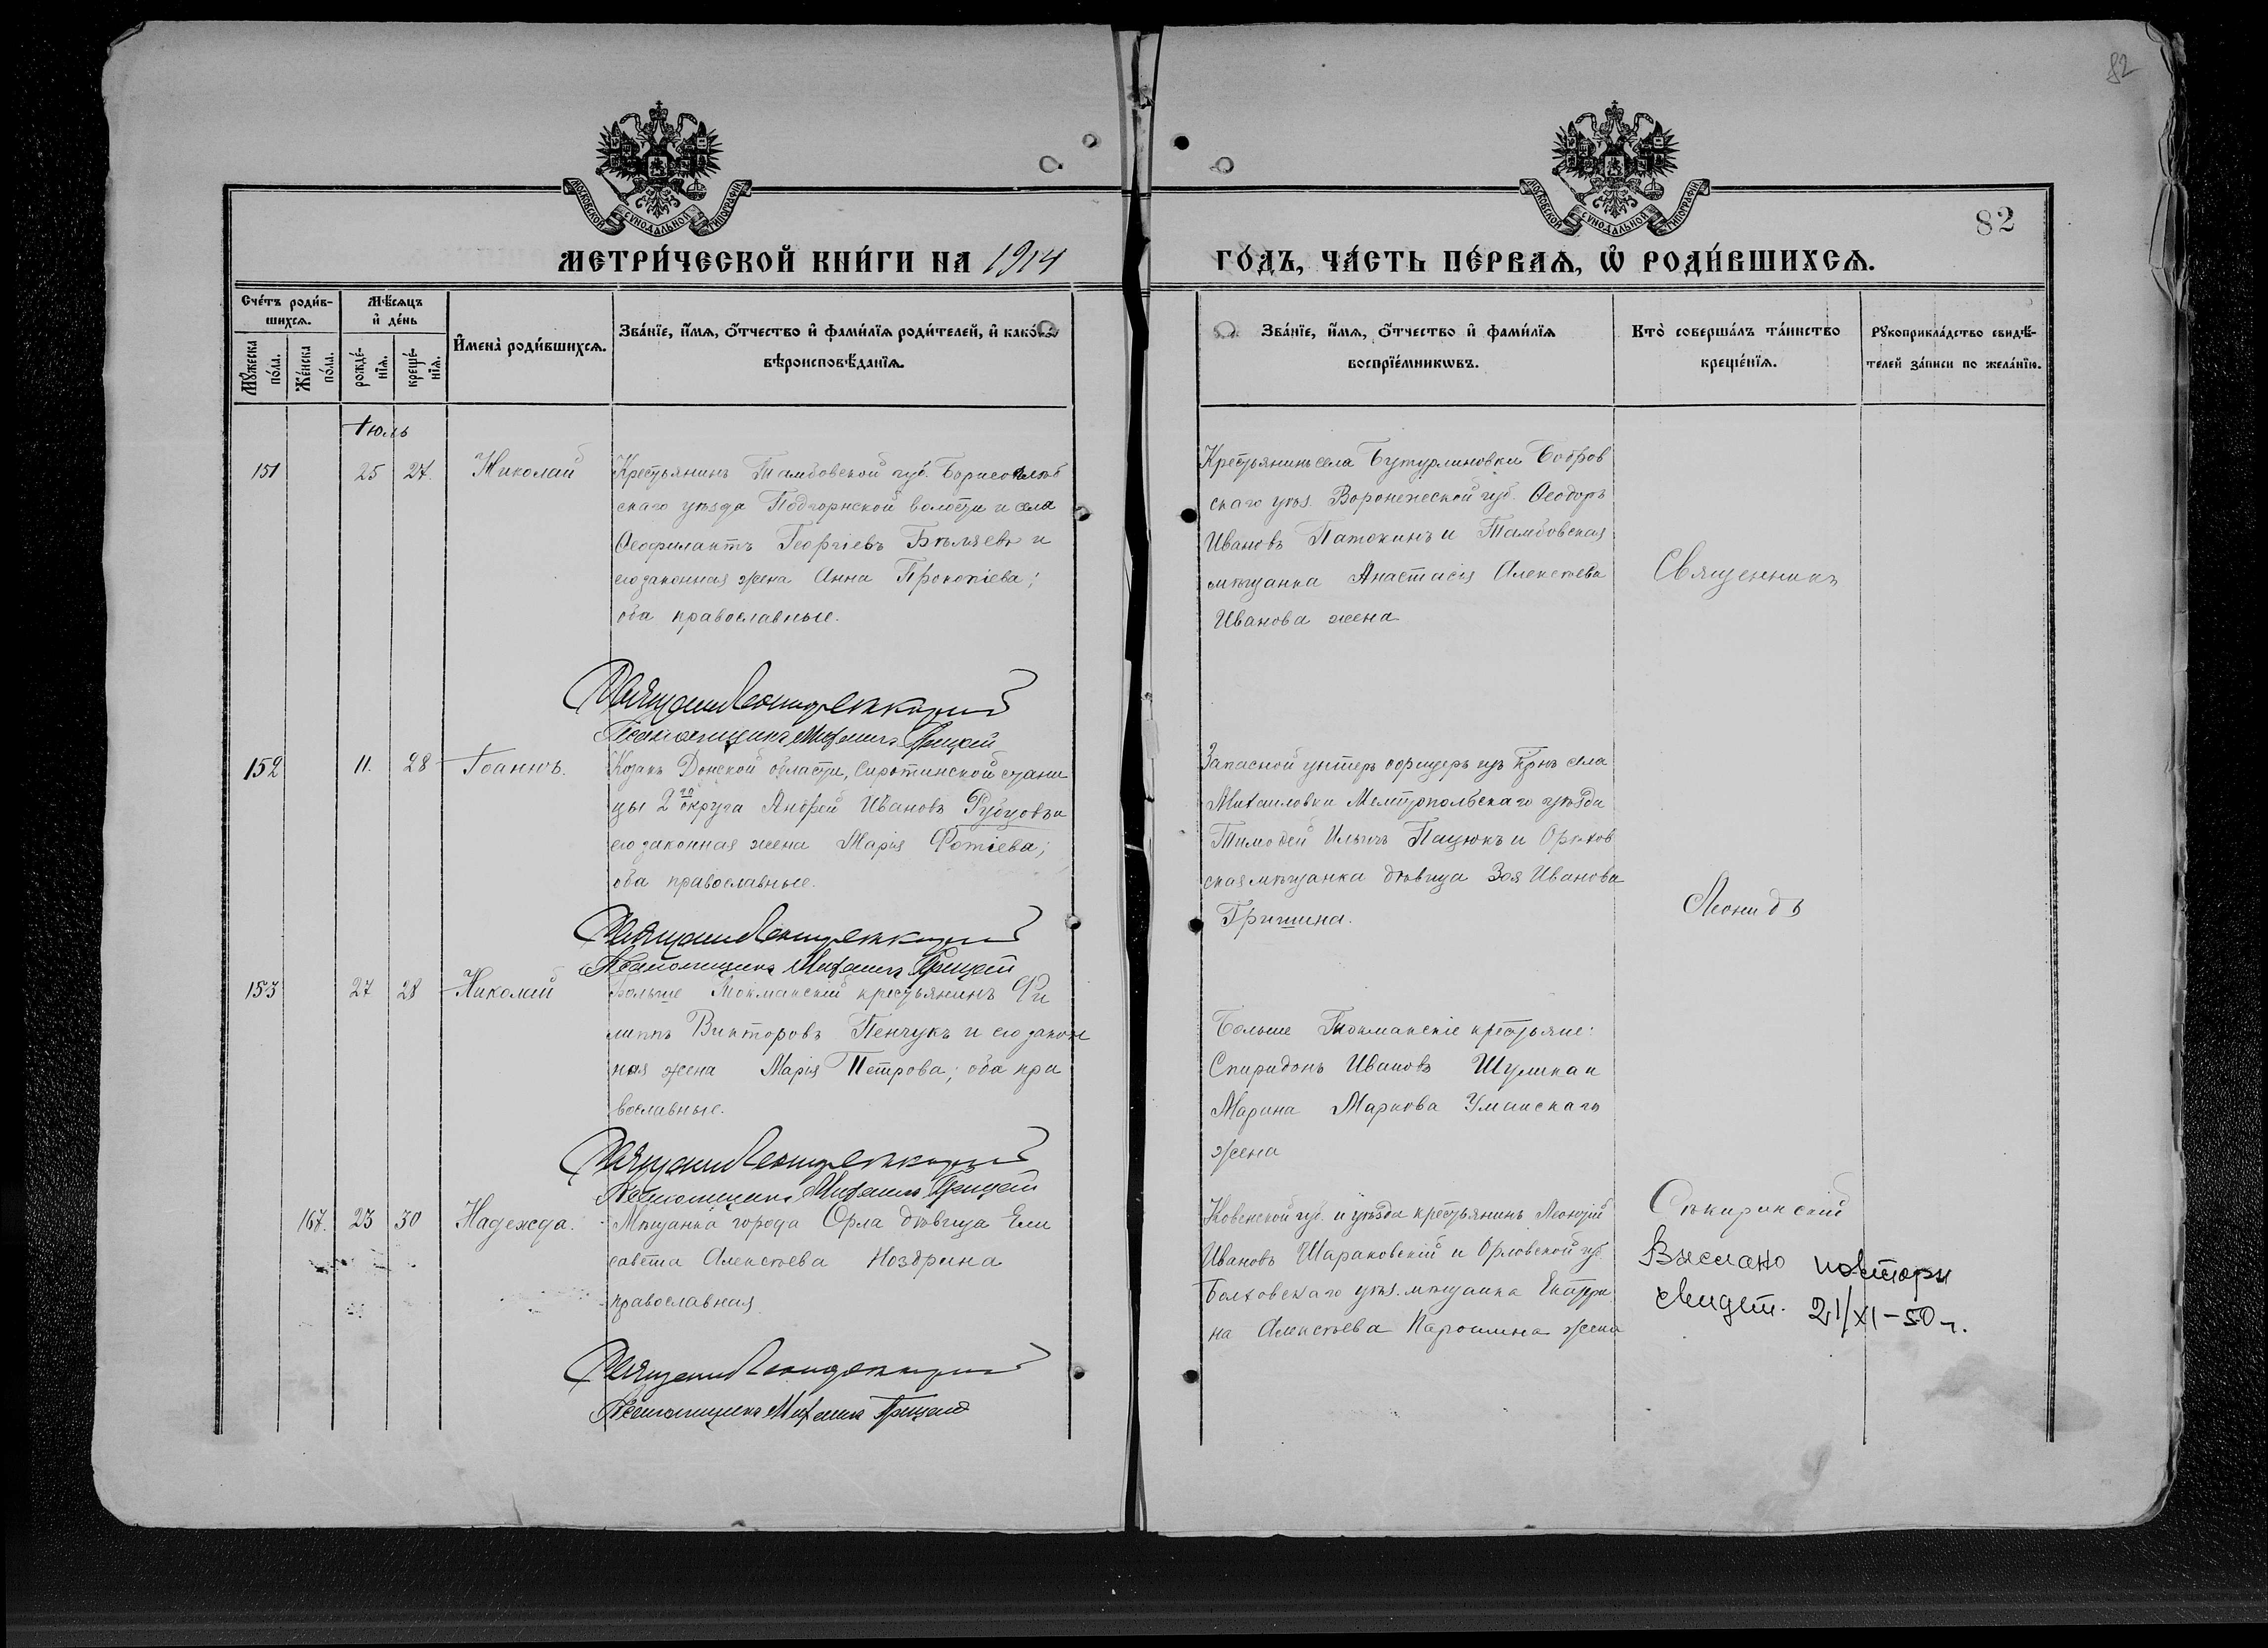 82
82
МОСКОВСКОЙ СУНОДАЛЬНОЙ ТИПОГРАФІИ
МОСКОВСКОЙ СУНОДАЛЬНОЙ ТИПОГРАФІИ
МЕТРИ́ЧЕСКОЙ КНИ́ГИ НА 1914
ГО́ДЪ, ЧА́СТЬ ПЕ́РВАѦ, Ѡ҆ РОДИ́ВШИХСѦ.
Сче́тъ роди́в-
шихсѧ.
Мѣ́сѧцъ
и҆ де́нь
Мꙋ́жеска по́ла.
Же́нска по́ла.
рожде́-нїѧ.
креще́-нїѧ.
И҆мена̀ роди́вшихсѧ.
Зва́нїе, и҆́мѧ, ѻ҆́тчество и҆ фами́лїѧ роди́телей, и҆ како́гѡ
вѣроисповѣ́данїѧ.
Зва́нїе, и҆́мѧ, ѻ҆́тчество и҆ фами́лїѧ
воспрїе́мникѡвъ.
Кто̀ соверша́лъ та́инство
креще́нїѧ.
Рꙋкоприкла́дство свидѣ́-
телей за́писи по жела́нїю.
Іюль
151 25 27. Николай
Крестьянинъ Тамбовской губ. Борисоглѣб
скаго уѣзда Подгорнской волости и села
Ѳеофилактъ Георгіевъ Бѣляевъ и
его законная жена Анна Прокопіева;
оба православные.
Крестьянинъ села Бутурлиновки Бобров
скаго уѣз. Воронежской губ. Ѳеодоръ
Ивановъ Патокинъ и Тамбовская
мѣщанка Анастасія Алексѣева
Иванова жена
Священникъ
Псаломщикъ Михаилъ Грицай
152 11. 28 Іоаннъ.
Козакъ Донской области, Сиротинской стани
цы 2го округа Андрей Ивановъ Рубцовъ и
его законная жена Марія Фотіева;
оба православные.
Запасной унтеръ офицеръ изъ крнъ села
Михаиловки Мелитопольскаго уѣзда
Тимофей Ильичъ Пацюкъ и Орѣхов
ская мѣщанка дѣвица Зоя Иванова
Гришина.
Леонидъ
Псаломщикъ Михаилъ Грицай
153 27 28 Николай
Больше Токмакскій крестьянинъ Фи
липпъ Викторовъ Пенчукъ и его закон
ная жена Марія Петрова; оба пра
вославные.
Больше Токмакскіе крестьяне:
Спиридонъ Ивановъ Шулика и
Марина Маркова Уманскаго
жена
Псаломщикъ Михаилъ Грицай
167. 23 30 Надежда.
Мѣщанка города Орла дѣвица Ели
савета Алексѣева Ноздрина
православная
Ковенской губ. и уѣзда крестьянинъ Леонтій
Ивановъ Шараковскій и Орловской губ.
Болховскаго уѣз. мѣщанка Екатери
на Алексѣева жена
Сѣкиринскій
Выслано повторн
свидет. 21/XI-50 г.
Псаломщикъ Михаилъ Грицай